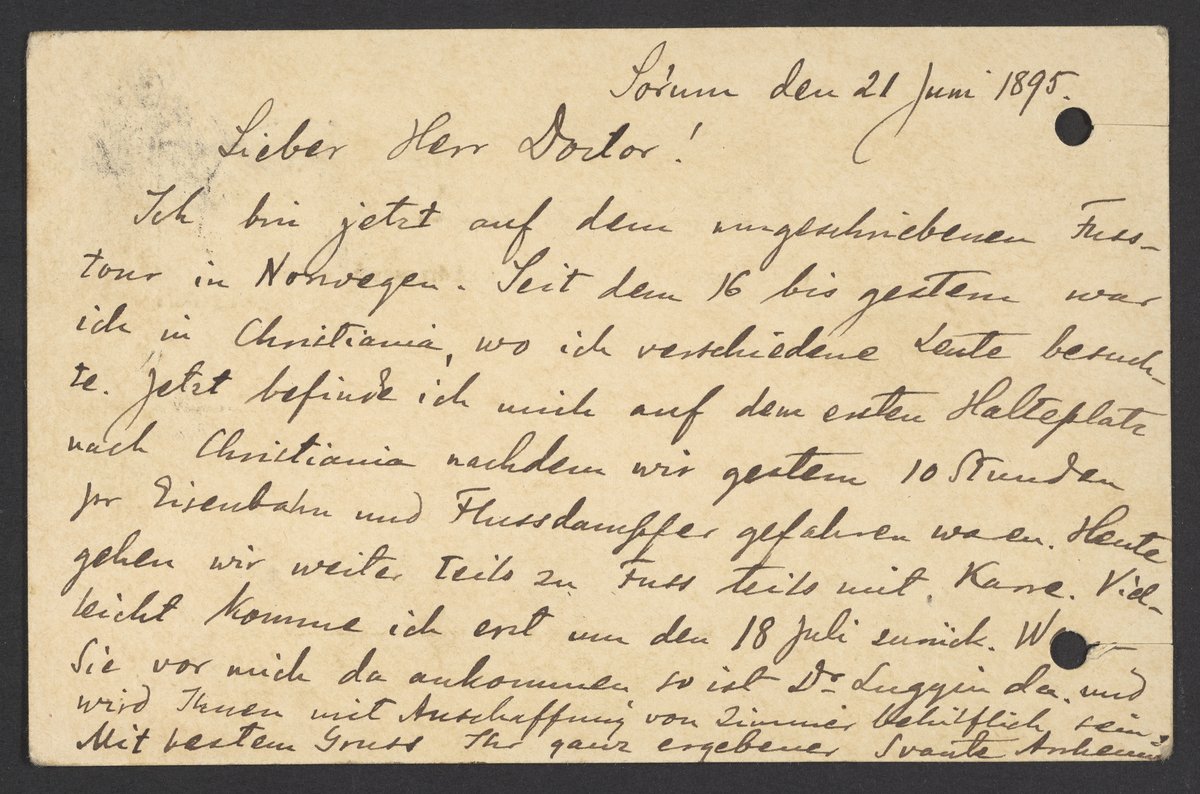 Sörum den 21 Juni 1895.
Lieber Herr Doctor!
Ich bin jetzt auf dem umgeschriebenen Fuss-
tour in Norwegen. Seit dem 16 bis gestern war
ich in Christiania, wo ich verschiedene Leute besuch-
te. Jetzt befinde ich mich auf dem ersten Halteplatz
nach Christiania nachdem wir gestern 10 Stunden
pr Eisenbahn und Flussdampfer gefahren waren. Heute
gehen wir weiter teils zu Fuss teils mit Karre. Viel-
leicht komme ich erst um den 18 Juli zurück.
Sie vor mich da ankommen so ist Dr Luggin da und
wird Ihnen mit Anschaffung von Zimmer behilflich sein.
Mit bestem Gruss Ihr ganz ergebener Svante Arrhenius